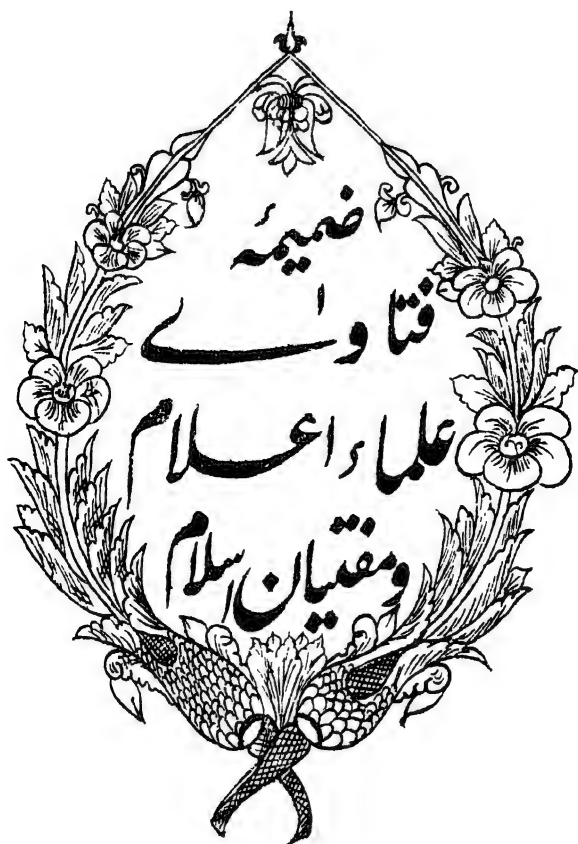 ضمیمۂ
فتاوےٰ
علماء اعلام
ومفتیان اسلام